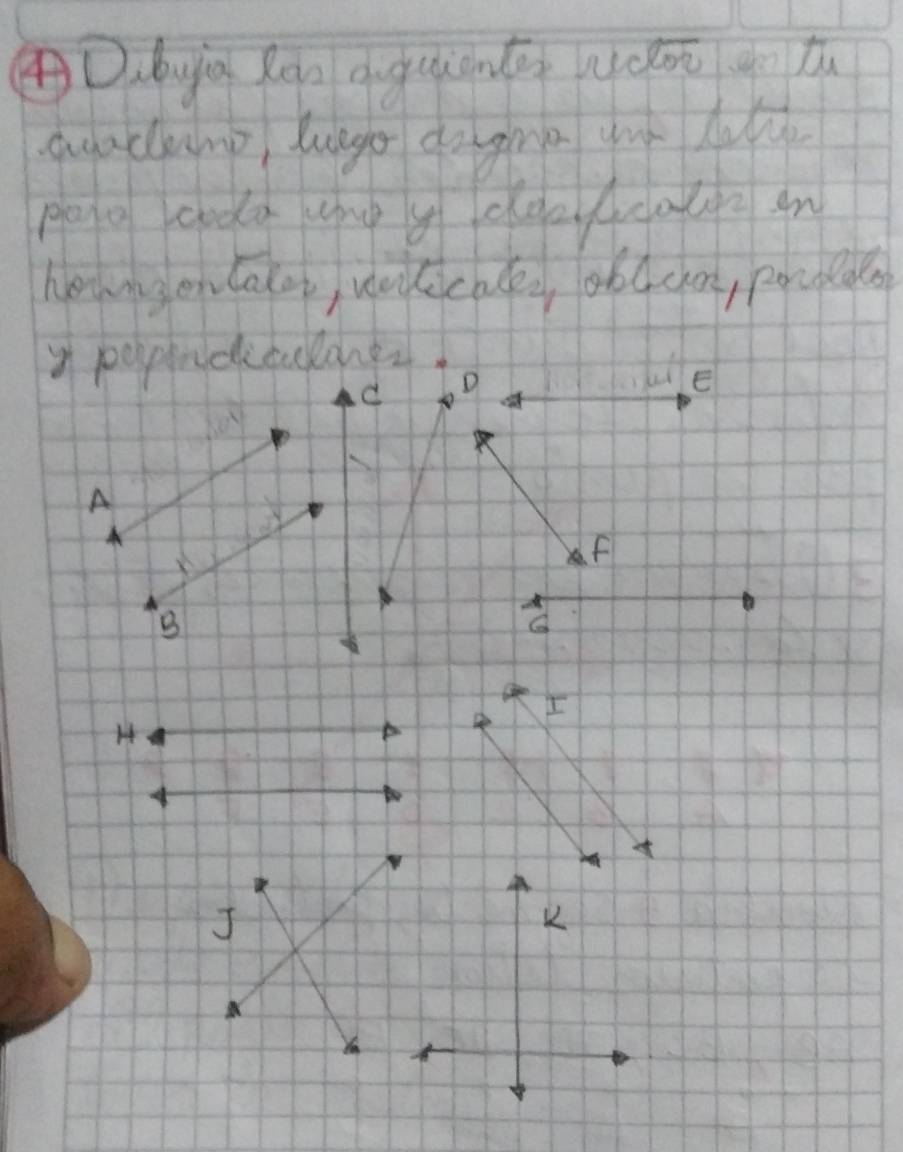 4 Dibuja las siguientes rectas en tu
cuaderno, luego asigna una letra
para cada una y clasificalas en
horinzontales, verticales, oblicuas, paralelas
y perpendiculares.
C D E
A
F
B G
H I
J K